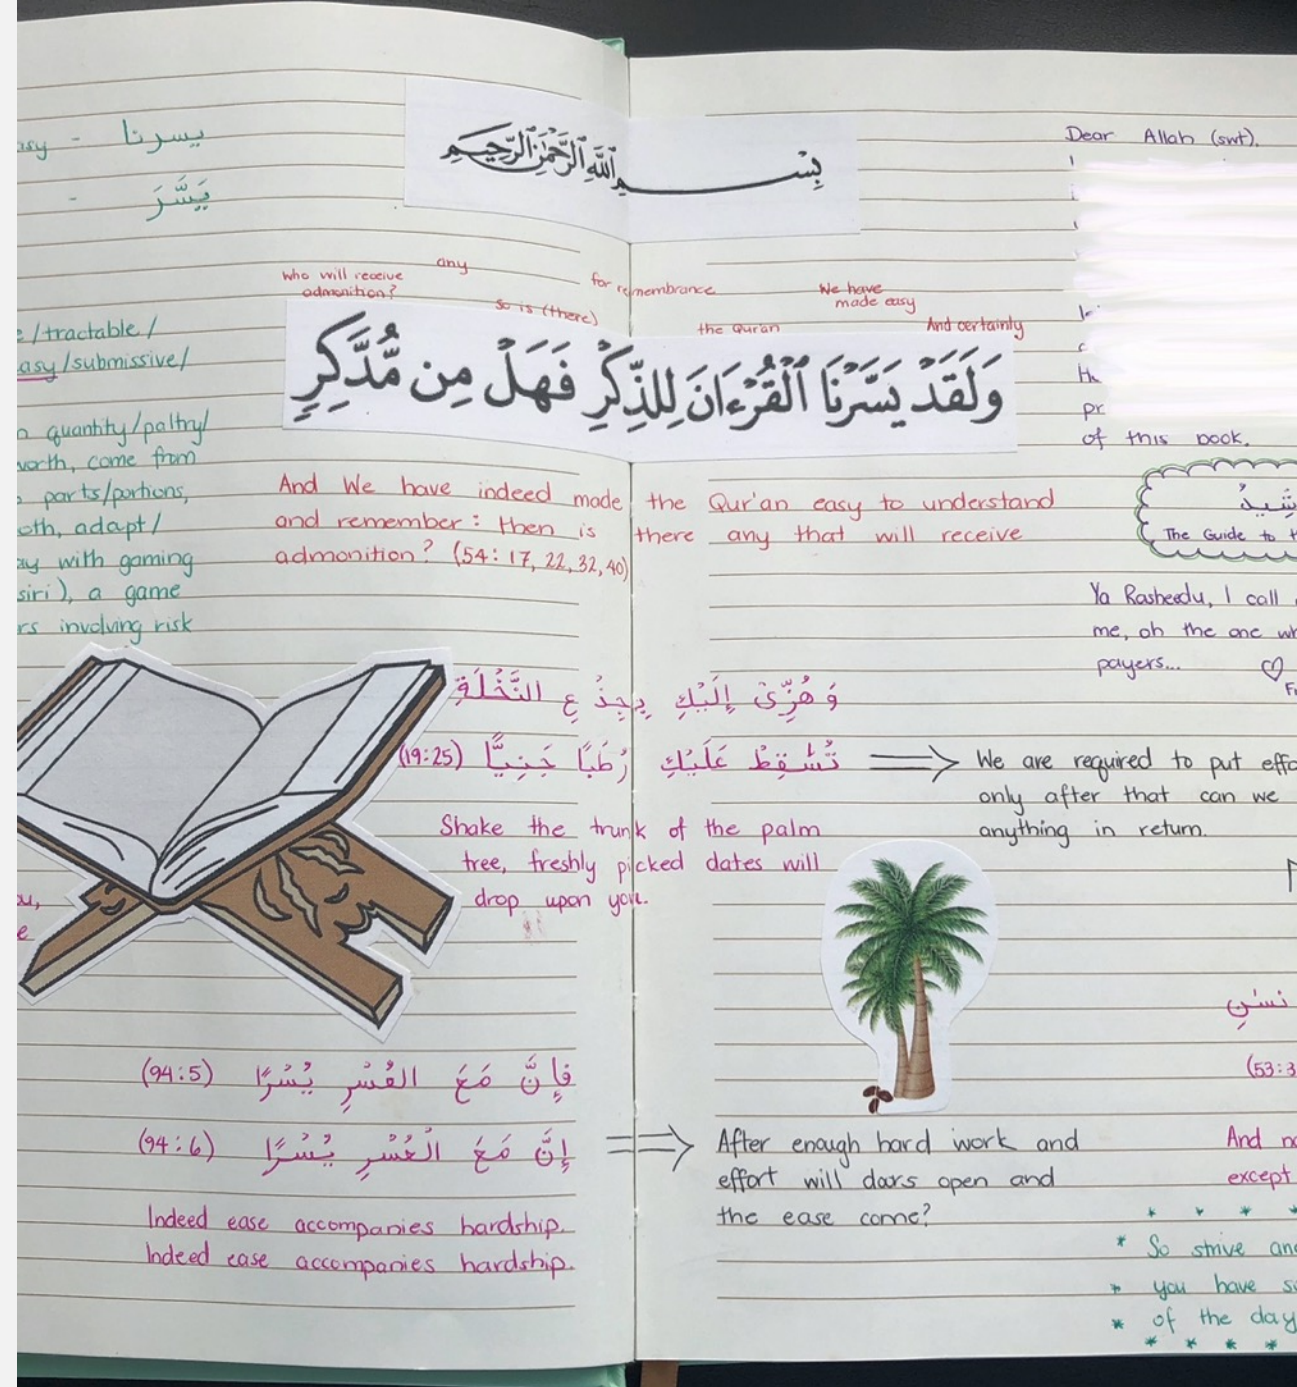 يسرنا -
يَسَّرَ -
/tractable/
asy/submissive/
quantity/paltry/
worth, come from
parts/portions,
oth, adapt/
with gaming
siri), a game
rs involving risk
بِسْمِ ٱللَّهِ ٱلرَّحْمَٰنِ ٱلرَّحِيمِ
And certainly
We have
made easy
the Quran
for remembrance
So is (there)
any
who will receive
admonition?
وَلَقَدْ يَسَّرْنَا ٱلْقُرْءَانَ لِلذِّكْرِ فَهَلْ مِن مُّدَّكِرٍ
And We have indeed made the Qur'an easy to understand
and remember: then is there any that will receive
admonition? (54: 17, 22, 32, 40)
وَ هُزِّىْ إِلَيْكِ بِجِذْعِ النَّخْلَةِ
تُسَٰقِطْ عَلَيْكِ رُطَبًا جَنِيًّا (19:25)
Shake the trunk of the palm
tree, freshly picked dates will
drop upon you.
We are required to put effo
only after that can we
anything in return.
فَإِنَّ مَعَ العُسْرِ يُسْرًا (94:5)
إِنَّ مَعَ الْعُسْرِ يُسْرًا (94:6)
Indeed ease accompanies hardship.
Indeed ease accompanies hardship.
After enough hard work and
effort will doors open and
the ease come?
Dear Allah (swt).
of this book.
The Guide to
Ya Rasheedu, I call
me, oh the one wh
payers...
(53:3
And no
except
So strive and
you have
of the day